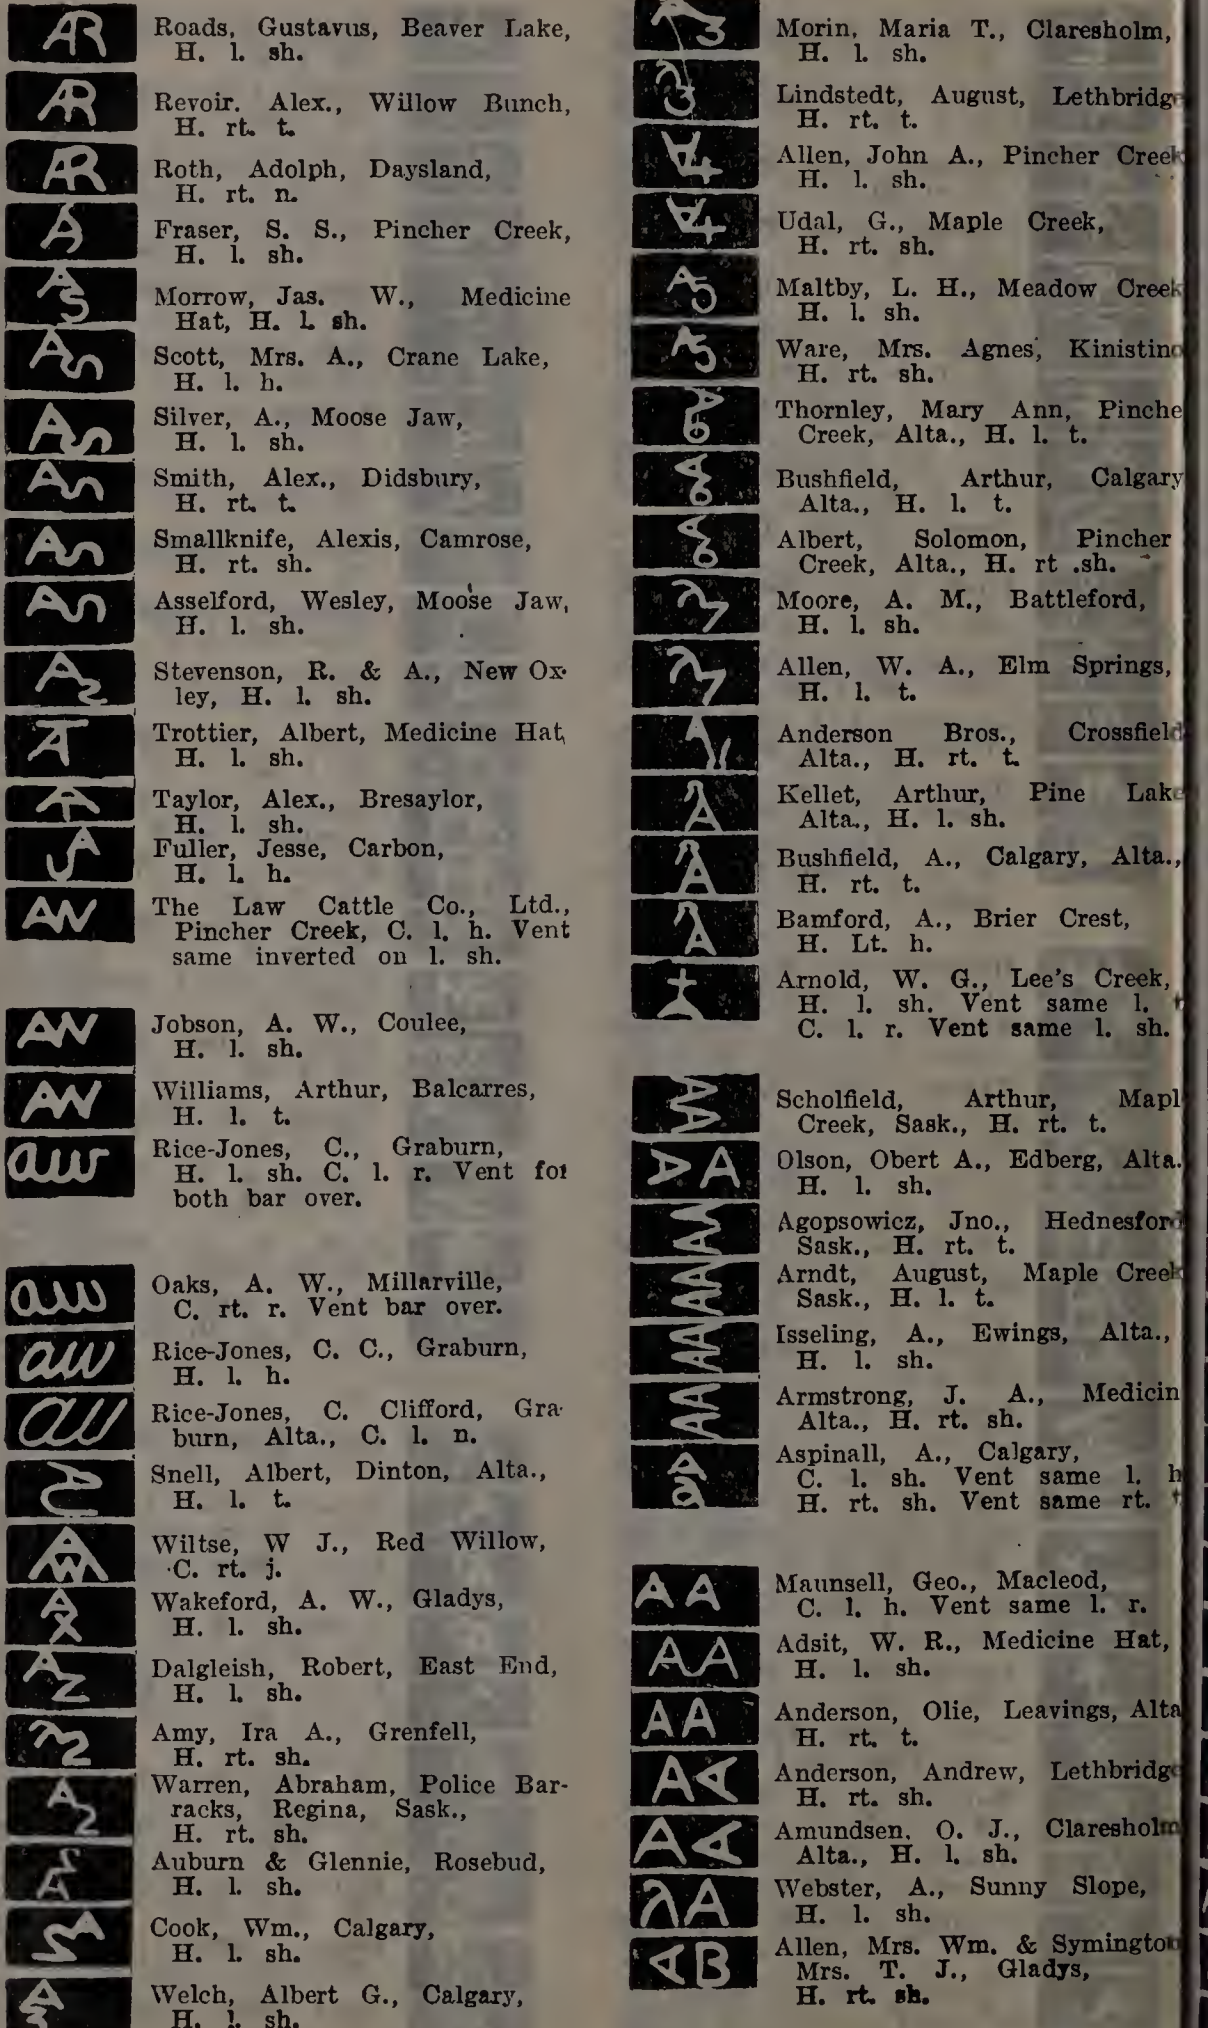 Roads, Gustavus, Beaver Lake,
H. l. sh.
Revoir. Alex., Willow Bunch,
H. rt. t.
Roth, Adolph, Daysland,
H. rt. n.
Fraser, S. S., Pincher Creek,
H. l. sh.
Morrow, Jas. W., Medicine
Hat, H. l. sh.
Scott, Mrs. A., Crane Lake,
H. l. h.
Silver, A., Moose Jaw,
H. l. sh.
Smith, Alex., Didsbury,
H. rt. t.
Smallknife, Alexis, Camrose,
H. rt. sh.
Asselford, Wesley, Moose Jaw,
H. l. sh.
Stevenson, R. & A., New Ox-
ley, H. l. sh.
Trottier, Albert, Medicine Hat,
H. l. sh.
Taylor, Alex., Bresaylor,
H. l. sh.
Fuller, Jesse, Carbon,
H. l. h.
The Law Cattle Co., Ltd.,
Pincher Creek, C. l. h. Vent
same inverted on l. sh.
Jobson, A. W., Coulee,
H. l. sh.
Williams, Arthur, Balcarres,
H. l. t.
Rice-Jones, C., Graburn,
H. l. sh. C. l. r. Vent for
both bar over.
Oaks, A. W., Millarville,
C. rt. r. Vent bar over.
Rice-Jones, C. C., Graburn,
H. l. h.
Rice-Jones, C. Clifford, Gra-
burn, Alta., C. l. n.
Snell, Albert, Dinton, Alta.,
H. l. t.
Wiltse, W J., Red Willow,
C. rt. j.
Wakeford, A. W., Gladys,
H. l. sh.
Dalgleish, Robert, East End,
H. l. sh.
Amy, Ira A., Grenfell,
H. rt. sh.
Warren, Abraham, Police Bar-
racks, Regina, Sask.,
H. rt. sh.
Auburn & Glennie, Rosebud,
H. l. sh.
Cook, Wm., Calgary,
H. l. sh.
Welch, Albert G., Calgary,
H. l. sh.
Morin, Maria T., Claresholm,
H. l. sh.
Lindstedt, August, Lethbridge
H. rt. t.
Allen, John A., Pincher Creek
H. l. sh.
Udal, G., Maple Creek,
H. rt. sh.
Maltby, L. H., Meadow Creek
H. l. sh.
Ware, Mrs. Agnes, Kinistino
H. rt. sh.
Thornley, Mary Ann, Pinche
Creek, Alta., H. l. t.
Bushfield, Arthur, Calgary
Alta., H. l. t.
Albert, Solomon, Pincher
Creek, Alta., H. rt .sh.
Moore, A. M., Battleford,
H. l. sh.
Allen, W. A., Elm Springs,
H. l. t.
Anderson Bros., Crossfield
Alta., H. rt. t.
Kellet, Arthur, Pine Lake
Alta., H. l. sh.
Bushfield, A., Calgary, Alta.,
H. rt. t.
Bamford, A., Brier Crest,
H. Lt. h.
Arnold, W. G., Lee's Creek,
H. l. sh. Vent same l. t
C. l. r. Vent same l. sh.
Scholfield, Arthur, Mapl
Creek, Sask., H. rt. t.
Olson, Obert A., Edberg, Alta.
H. l. sh.
Agopsowicz, Jno., Hednesford
Sask., H. rt. t.
Arndt, August, Maple Creek
Sask., H. l. t.
Isseling, A., Ewings, Alta.,
H. l. sh.
Armstrong, J. A., Medicin
Alta., H. rt. sh.
Aspinall, A., Calgary,
C. l. sh. Vent same l. h
H. rt. sh. Vent same rt. t
Maunsell, Geo., Macleod,
C. l. h. Vent same l. r.
Adsit, W. R., Medicine Hat,
H. l. sh.
Anderson, Olie, Leavings, Alta
H. rt. t.
Anderson, Andrew, Lethbridge
H. rt. sh.
Amundsen, O. J., Claresholm
Alta., H. l. sh.
Webster, A., Sunny Slope,
H. l. sh.
Allen, Mrs. Wm. & Symington
Mrs. T. J., Gladys,
H. rt. sh.